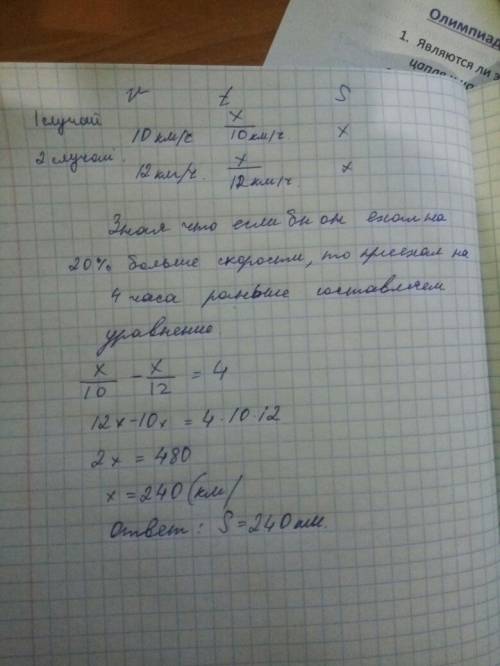 Олимпиад
1. Являются ли э
цапля и
v t S
1 случай 10 км/ч x/10км/ч. x
2 случай. 12км/ч. x/12км/ч. x
Зная что если бы он ехал на
20% больше скоростью, то приехал на
4 часа раньше составляем
уравнение
x/10 - x/12 = 4
12x-10x = 4·10·12
2x = 480
x = 240 (км/
Ответ: S = 240 км.